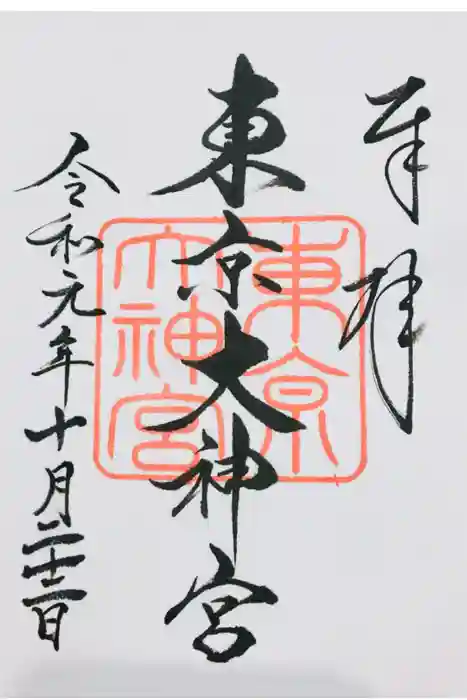 奉拝
東京大神宮
令和元年十月二十二日
東京
大神宮